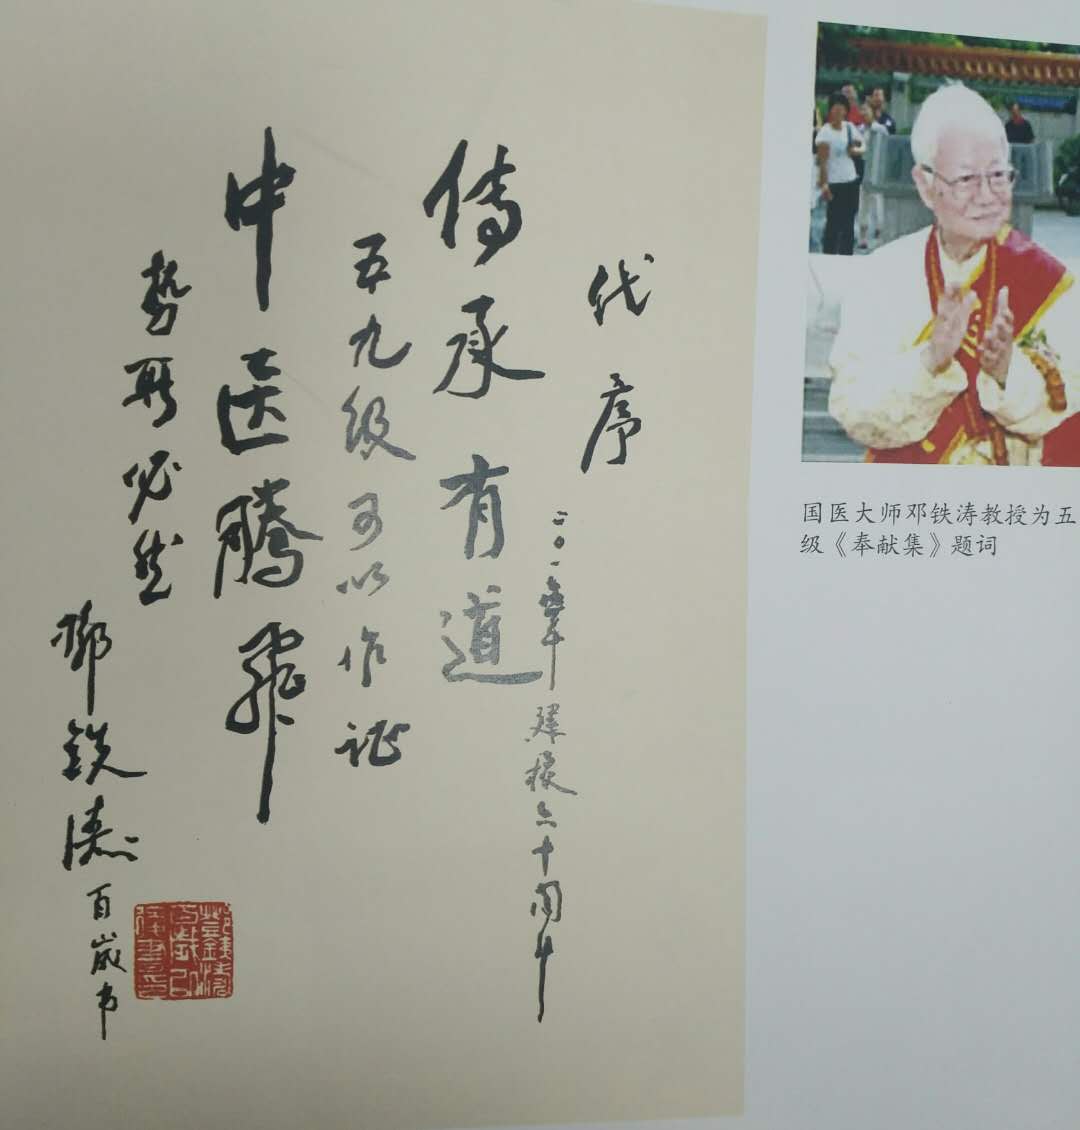 代序
二〇一六年建校六十周年
傳承有道
五九级可以作证
中医腾飛
势所必然
鄧鉄涛百岁书
国医大师邓铁涛教授为五
级《奉献集》题词